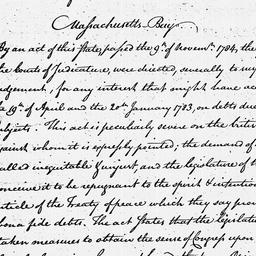 Massachusetts Bay.
By an act of this State, passed the 9th of Novemr. 1784, the
the Courts of Judicature, were directed, severally to
judgement, for any interest that might have acc
the 19th of April and the 20th January 1783, on debts due
subjects. This act is peculiarly severe on the British
against whom it is expressly pointed; the demand of
called inequitable & unjust, and the legislature of th
conceive it to be repugnant to the spirit & intention
article of the Treaty of peace which they say prov
bona fide debts. The act States that the legislatu
taken measures to obtain the sense of Congress upon